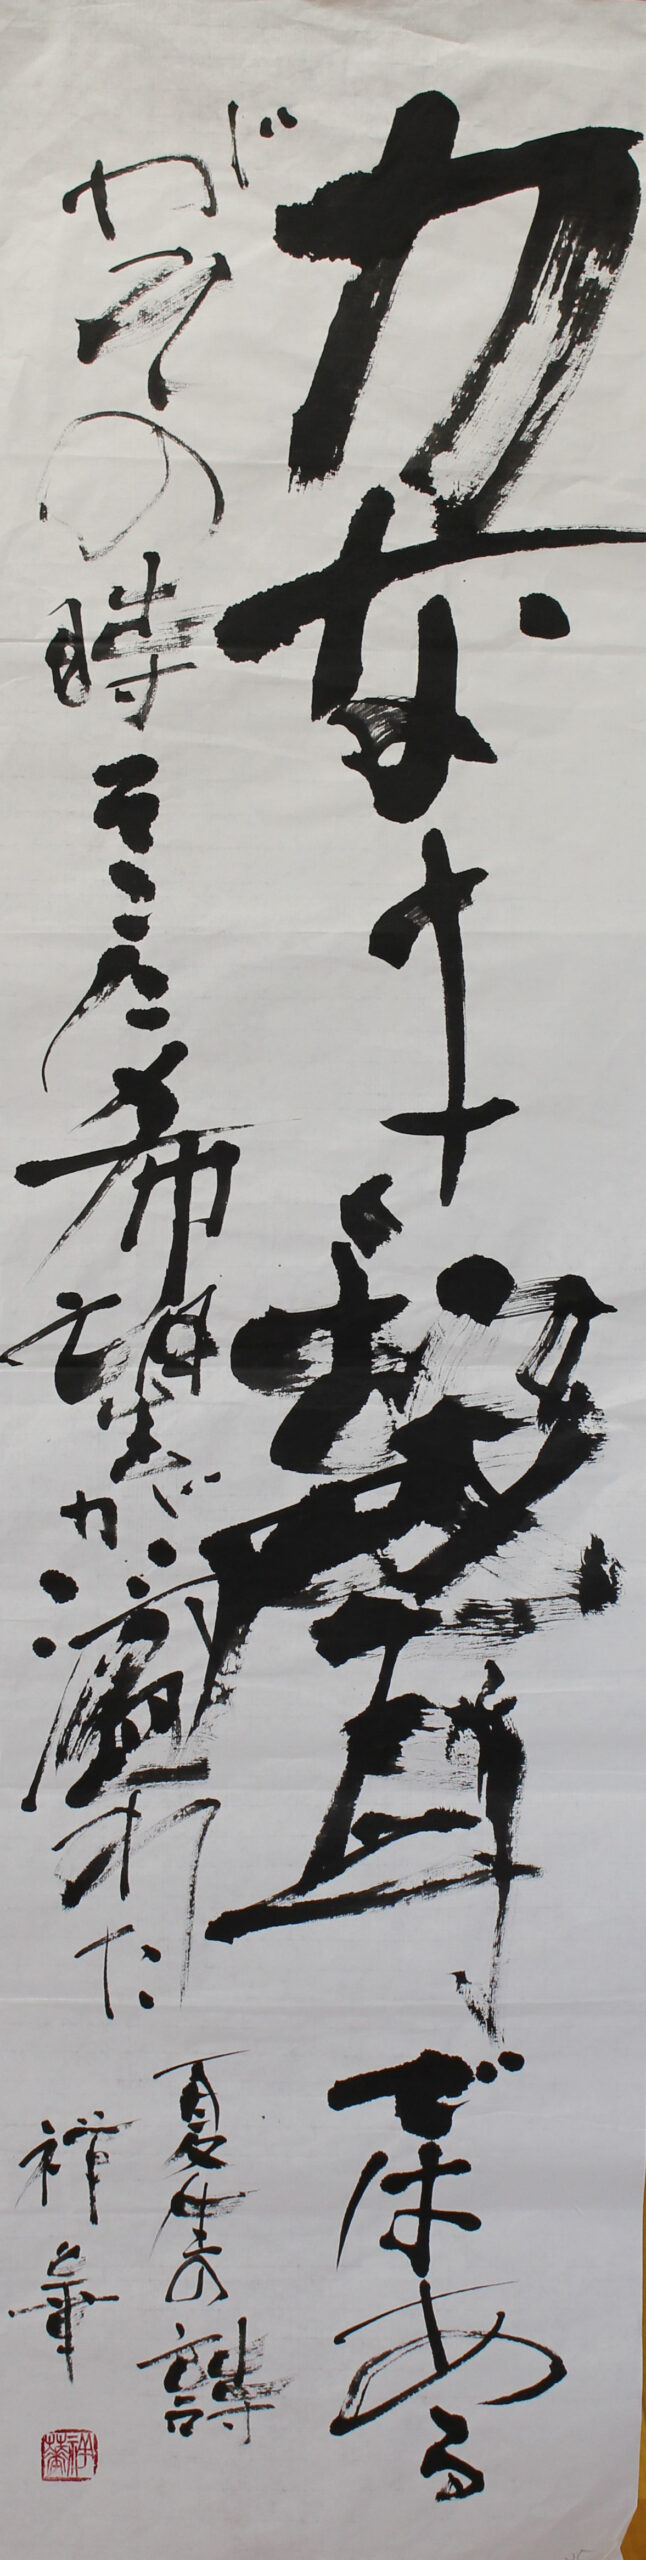 力なき聲ではある
がその時そこに希望が溢れた
夏の詩
祥華